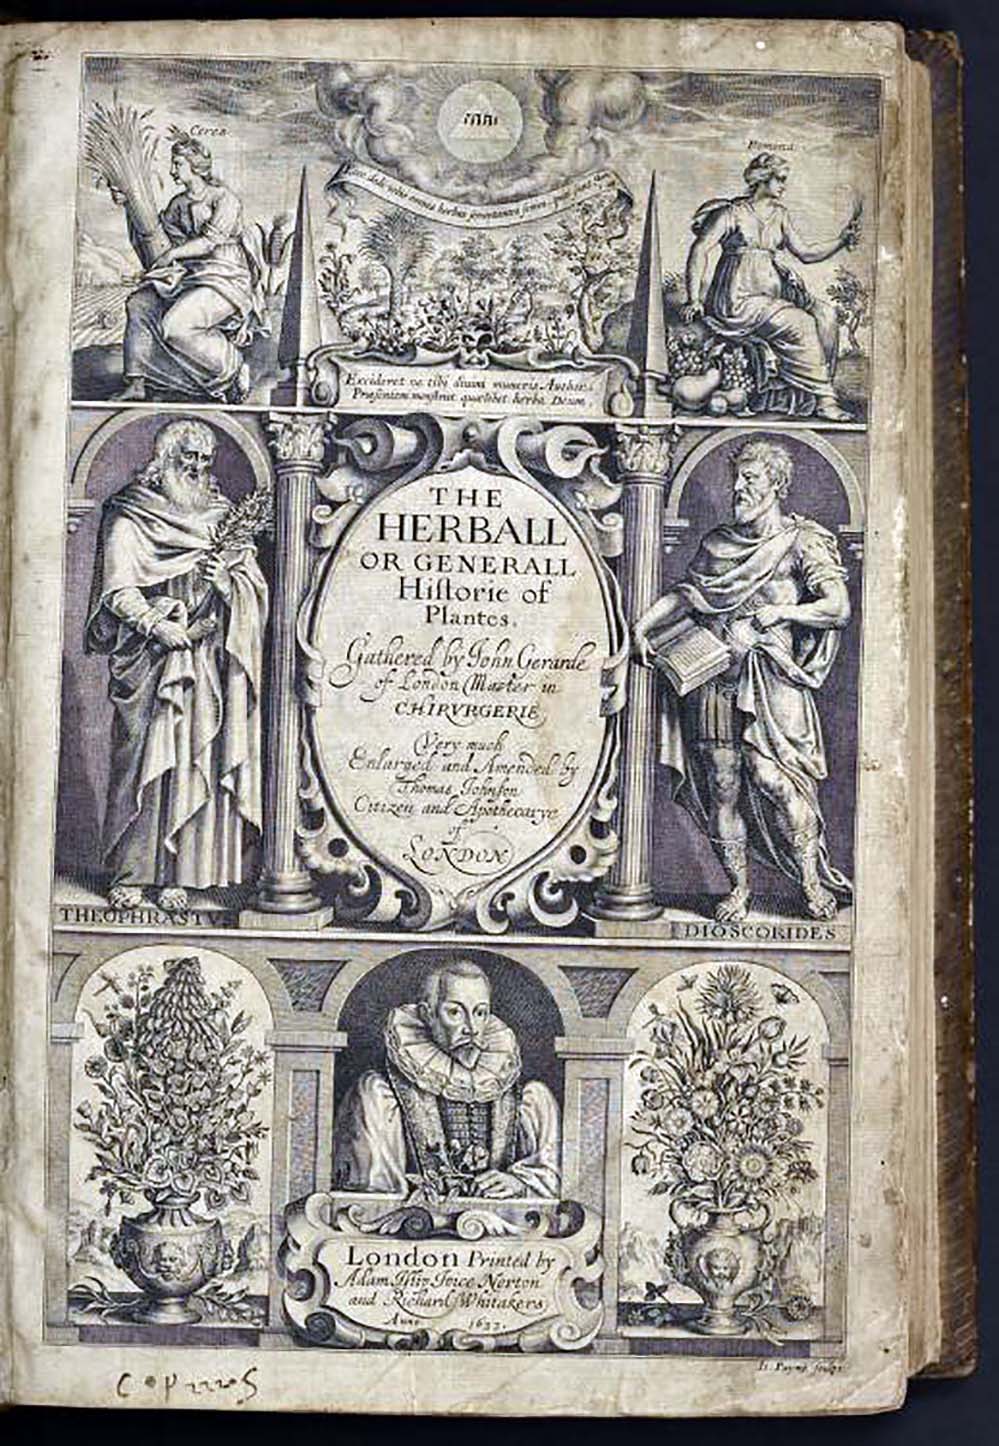 Ceres
Pomona
יהוה
Ecce dedi vobis omnes herbas sementantes semen quae sunt
Excideret ne tibi diuini muneris Author,
Præsentem monstrat quælibet herba Deum.
THE
HERBALL
OR GENERALL
Hiſtorie of
Plantes.
Gathered by John Gerarde
of London Master in
CHIRVRGERIE
Very much
Enlarged and Amended by
Thomas Johnson
Citizen and Apothecarye
of
LONDON
THEOPHRASTVS
DIOSCORIDES
London Printed by
Adam Islip Joice Norton
and Richard Whitakers
Anno 1633.
Io: Payne sculp: